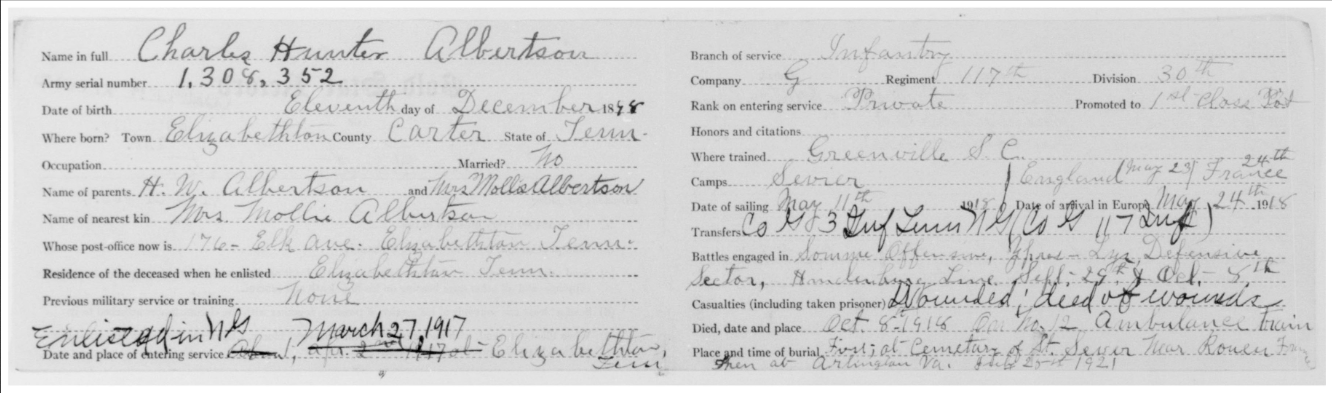 Name in full Charles Hunter Albertson
Army serial number 1,308,352
Date of birth Eleventh day of December 1898
Where born? Town Elizabethton County Carter State of Tenn.
Occupation Married? No
Name of parents H. W. Albertson and Mrs Mollie Albertson
Name of nearest kin Mrs Mollie Albertson
Whose post-office now is 176 - Elk Ave. Elizabethton Tenn.
Residence of the deceased when he enlisted Elizabethton Tenn.
Previous military service or training None
Enlisted in NG March 27, 1917
Date and place of entering service Apr. 2nd 1917 at Elizabethton,
Tenn
Branch of service Infantry
Company G Regiment 117th Division 30th
Rank on entering service Private Promoted to 1st Class Pvt
Honors and citations
Where trained Greenville S C.
Camps Sevier England May 23 / France 24th
Date of sailing May 11th 1918 Date of arrival in Europe May 24th 1918
Transfers Co G 3 Inf Tenn NG (Co G 117 Inf)
Battles engaged in Somme Offensive, Ypres - Lys Defensive
Sector, Line Sept. 29th & Oct. 8th
Casualties (including taken prisoner) Wounded; died of wounds
Died, date and place Oct. 8-1918 On No. 12 Ambulance train
Place and time of burial First; at Cemetary of St. Sever Near Rouen
then at Arlington Va. 25 1921